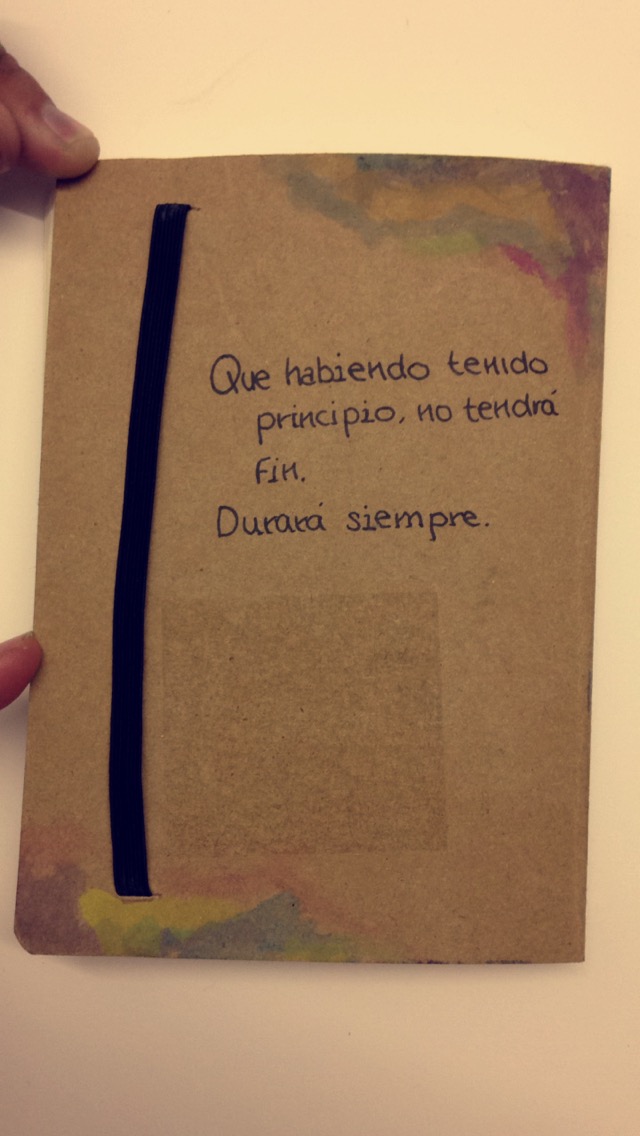 Que habiendo tenido
principio, no tendrá
fin.
Durará siempre.